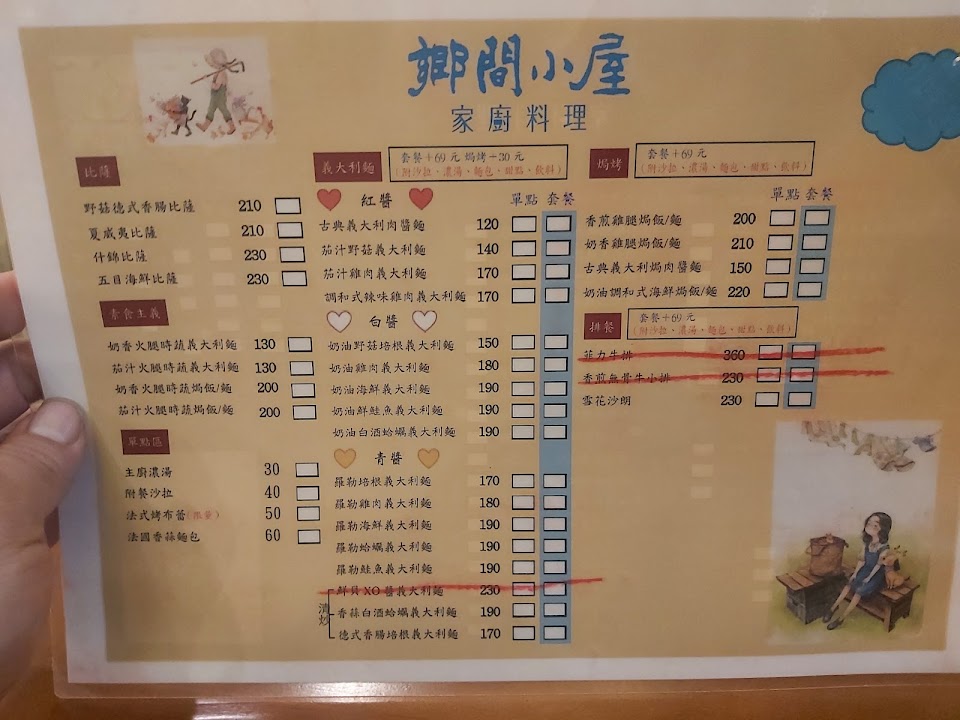 鄉間小屋
家廚料理
比薩
野菇德式香腸比薩 210
夏威夷比薩 210
什錦比薩 230
五目海鮮比薩 230
青食主義
奶香火腿時蔬義大利麵 130
茄汁火腿時蔬義大利麵 130
奶香火腿時蔬焗飯/麵 200
茄汁火腿時蔬焗飯/麵 200
單點區
主廚濃湯 30
附餐沙拉 40
法式烤布蕾(限量) 50
法國香蒜麵包 60
義大利麵
套餐+69元 焗烤+30元
(附沙拉、濃湯、麵包、甜點、飲料)
紅醬 單點 套餐
古典義大利肉醬麵 120
茄汁野菇義大利麵 140
茄汁雞肉義大利麵 170
調和式辣味雞肉義大利麵 170
白醬
奶油野菇培根義大利麵 150
奶油雞肉義大利麵 180
奶油海鮮義大利麵 190
奶油鮮鮭魚義大利麵 190
奶油白酒蛤蠣義大利麵 190
青醬
羅勒培根義大利麵 170
羅勒雞肉義大利麵 180
羅勒海鮮義大利麵 190
羅勒蛤蠣義大利麵 190
羅勒鮭魚義大利麵 190
清炒
鮮貝XO醬義大利麵 230
香蒜白酒蛤蠣義大利麵 190
德式香腸培根義大利麵 170
焗烤
套餐+69元
(附沙拉、濃湯、麵包、甜點、飲料)
單點 套餐
香煎雞腿焗飯/麵 200
奶香雞腿焗飯/麵 210
古典義大利焗肉醬麵 150
奶油調和式海鮮焗飯/麵 220
排餐
套餐+69元
(附沙拉、濃湯、麵包、甜點、飲料)
菲力牛排 360
香煎無骨牛小排 230
雪花沙朗 230